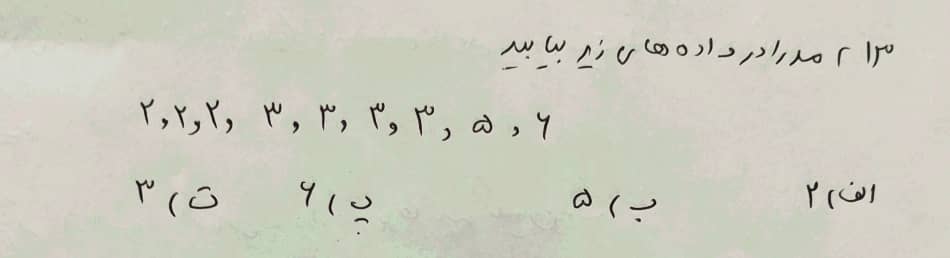 ۱۳) مد را در داده های زیر بیابید
۲,۲,۲, ۳, ۳, ۳, ۳, ۵, ۶
الف) ۲ ب) ۵ پ) ۶ ت) ۳